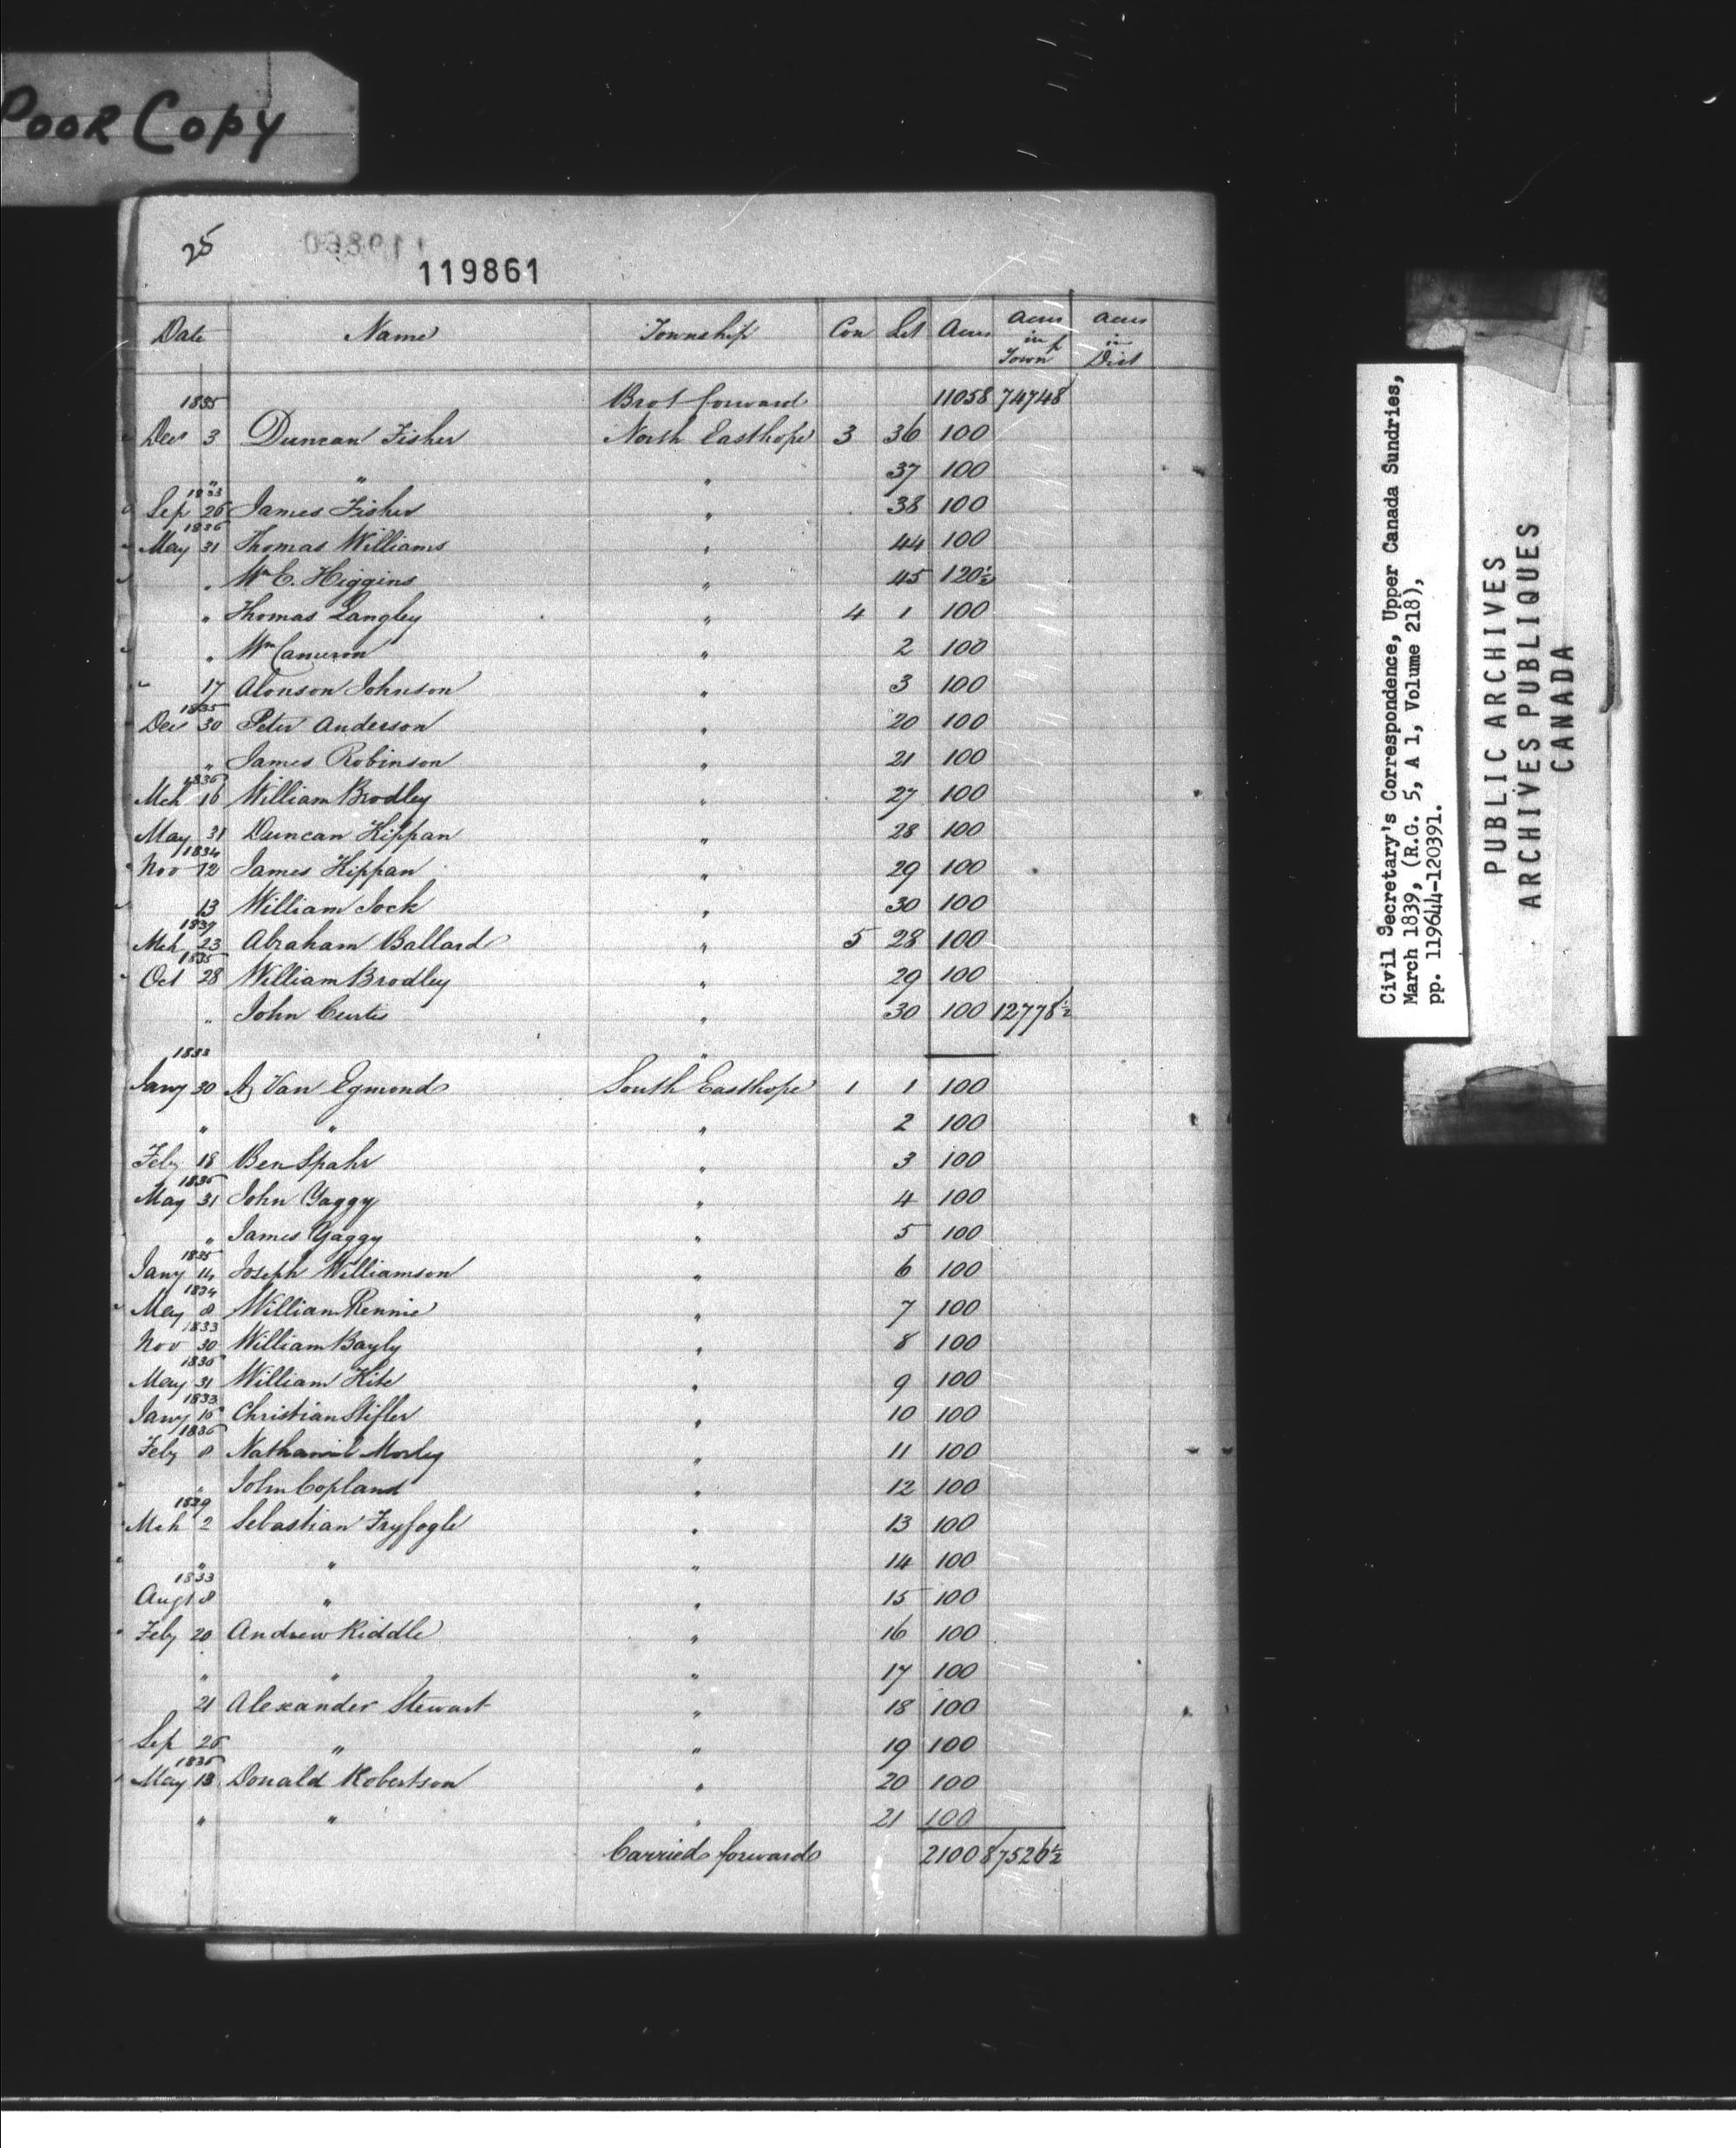 Poor Copy
25
119861
Date Name Township Con Lot Acres Acres in Townp Acres in Dist
1835 Brot forward 11058 74748
Dec 3 Duncan Fisher North Easthope 3 36 100
" " " 37 100
1833
Sep 26 James Fisher " 38 100
1836
May 31 Thomas Williams " 44 100
" Wm C. Higgins " 45 120½
" Thomas Langley " 4 1 100
" Wm Cameron " 2 100
17 Alonson Johnson " 3 100
1835
Dec 30 Peter Anderson " 20 100
" James Robinson " 21 100
1836
Mch 16 William Brodley " 27 100
May 31 Duncan Kippan " 28 100
1834
Nov 12 James Kippan " 29 100
13 William Jock " 30 100
1837
Mch 23 Abraham Ballard " 5 28 100
1835
Oct 28 William Brodley " 29 100
" John Curtis " 30 100 12778½
1833 "
Jany 30 A Van Egmond South Easthope 1 1 100
" " " 2 100
Feby 18 Ben Spahr " 3 100
1836
May 31 John Yaggy " 4 100
" James Yaggy " 5 100
1835
Jany 14 Joseph Williamson " 6 100
1834
May 8 William Rennie " 7 100
1833
Nov 30 William Bayly " 8 100
1836
May 31 William Kite " 9 100
1833
Jany 16 Christian Stifler " 10 100
1836
Feby 8 Nathaniel Morley " 11 100
" John Copland " 12 100
1839
Mch 2 Sebastian Fryfogle " 13 100
" " " 14 100
1833
Augt 8 " " 15 100
Feby 20 Andrew Riddle " 16 100
" " " 17 100
21 Alexander Stewart " 18 100
Sep 26 " " 19 100
1836
May 13 Donald Robertson " 20 100
" " " 21 100
Carried forward 2100 87526½
Civil Secretary's Correspondence, Upper Canada Sundries,
March 1839, (R.G. 5, A 1, Volume 218),
pp. 119644-120391.
PUBLIC ARCHIVES
ARCHIVES PUBLIQUES
CANADA